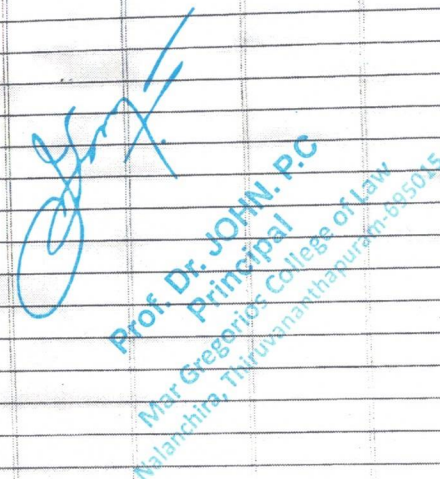 Prof. Dr. JOHN. P.C
Principal
Mar Gregorios College of Law
Nalanchira, Thiruvananthapuram-695015